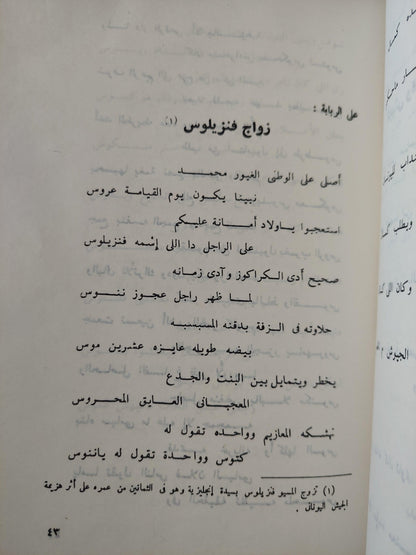 على الربابة :
زواج فنزيلوس (١)
أصلى على الوطنى الغيور محمـد
نبينا يكون يوم القيامة عروس
استعجبوا ياولاد أمـانة عليـكم
على الراجل دا اللى إسْمه فنزيلوس
صحيح أدى الكراكوز وآدى زمانه
لمـا ظهر راجل عجوز ننـوس
حلاوته فى الزفة بدقنته المسبسبـه
بيضه طويله عايزه عشرين موس
يخطر ويتمايل بين البنت والجدع
المعجبـانى العـايق المحـروس
تهشكه المعازيم وواحـده تقول له
كتنوس وواحدة تقول له ياننوس
(١) تزوج المسيو فنزيلوس بسيدة إنجليزية وهو فى الثمانين من عمره على أثر هزيمة
الجيش اليونانى .
٤٣
ويطلب
وكان اللى
الجيوش